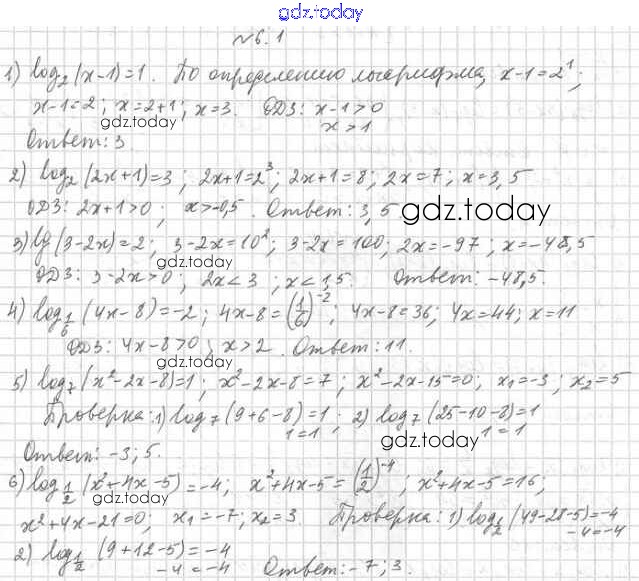 gdz.today
№6.1
1) log₂(x-1)=1. По определению логарифма, x-1=2¹;
x-1=2; x=2+1; x=3. ОДЗ: x-1>0
gdz.today x>1
Ответ: 3.
2) log₂(2x+1)=3; 2x+1=2³; 2x+1=8; 2x=7; x=3,5
ОДЗ: 2x+1>0; x>-0,5. Ответ: 3,5 gdz.today
gdz.today
3) lg(3-2x)=2; 3-2x=10²; 3-2x=100; 2x=-97; x=-48,5
ОДЗ: 3-2x>0; 2x<3; x<1,5. Ответ: -48,5.
gdz.today
4) log_{1/6}(4x-8)=-2; 4x-8=(1/6)⁻²; 4x-8=36; 4x=44; x=11
ОДЗ: 4x-8>0; x>2. Ответ: 11.
gdz.today
5) log₇(x²-2x-8)=1; x²-2x-8=7; x²-2x-15=0; x₁=-3; x₂=5
Проверка: 1) log₇(9+6-8)=1; 2) log₇(25-10-8)=1
1=1 1=1
gdz.today
Ответ: -3; 5.
6) log_{1/2}(x²+4x-5)=-4; x²+4x-5=(1/2)⁻⁴; x²+4x-5=16;
gdz.today
x²+4x-21=0; x₁=-7; x₂=3. Проверка: 1) log_{1/2}(49-28-5)=-4
-4=-4
2) log_{1/2}(9+12-5)=-4
-4=-4 Ответ: -7; 3.
gdz.today